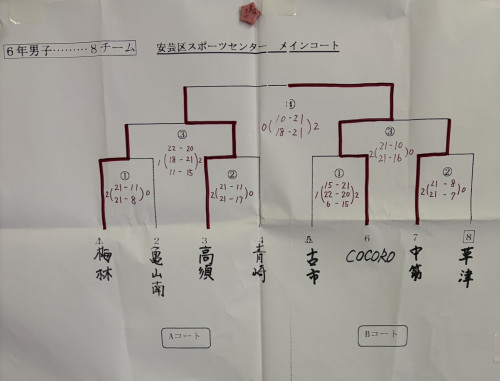 6年男子………8チーム
安芸区スポーツセンター メインコート
①
0(10-21 18-21)2
③
1(22-20 18-21 11-15)2
③
2(21-10 21-16)0
①
2(21-11 21-8)0
②
2(21-11 21-17)0
①
1(15-21 22-20 6-15)2
②
2(21-8 21-7)0
1 2 3 4 5 6 7 8
梅林 亀山南 高須 青崎 古市 COCORO 中筋 草津
Aコート
Bコート